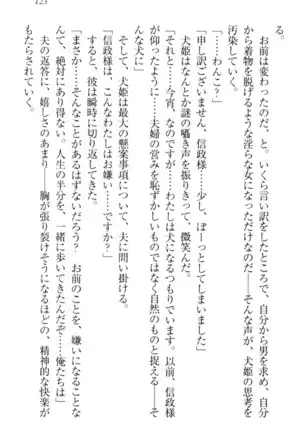 123
る。
　お前は変わったのだ、と。いくら言い訳をしたところで、自分から男を求め、自分
から着物を脱げるような淫らな女になっただけなのだ――そんな声が、犬姫の思考を
汚染していく。
「……わんこ？」
「申し訳ございません、信政様……少し、ぼーっとしてしまって」
　犬姫はなんとか謎の囁き声を振りきって、微笑んだ。
「それと……今宵、なのですが……わたしは犬になるつもりでいます。以前、信政様
が仰ったように……夫婦の営みを恥ずかしいものではなく自然のものと捉える――そ
んな犬に」
　そして、犬姫は最大の懸案事項について、夫に問い掛ける。
「信政様は、こんなわたしはお嫌い……ですか？」
　すると、彼は瞬時に切り返してきた。
「まさか……そんなことがあるはずないだろう？　お前のことを、嫌いになることな
んて、絶対にあり得ない。人生の半分を、一緒に歩いてきたんだぞ……俺たちは」
　夫の返答に、嬉しさのあまり――胸が張り裂けそうになるほどの、精神的な快楽が
もたらされていく。